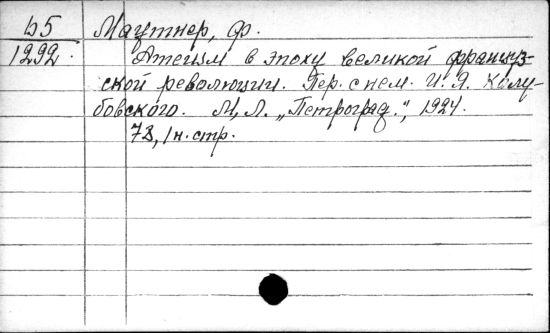 Б5 Маутнер, Ф.
1292. Атеизм в эпоху великой француз-
ской революции. Пер. с нем. И. Я. Колу-
бовского. М, Л. „Петроград.", 1924.
73, 1 н. стр.